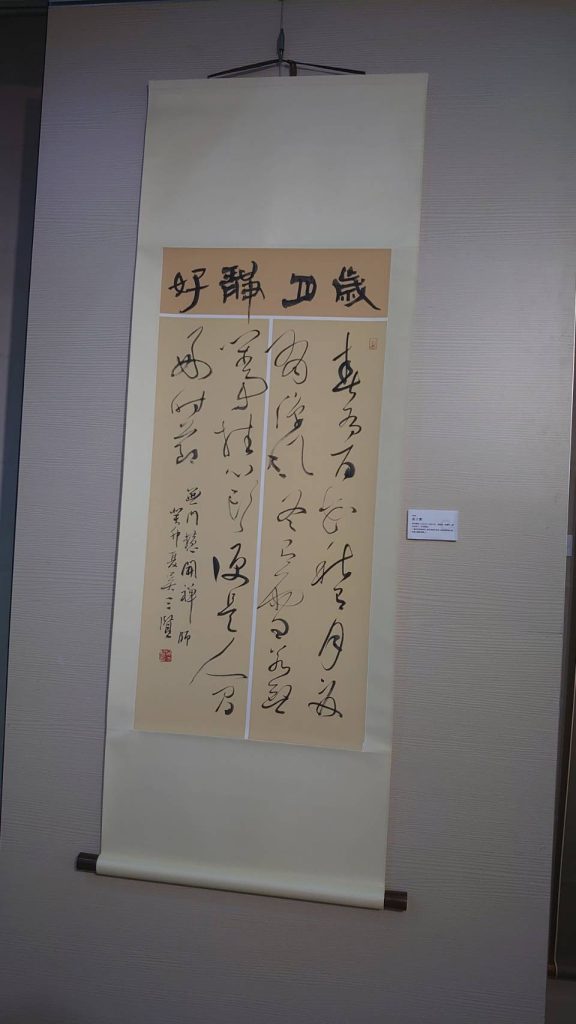 歲月靜好
春有百花秋有月夏
有涼風冬有雪若無
閒事挂心頭便是人間
好時節
無門慧開禪師
癸卯夏吳三賢